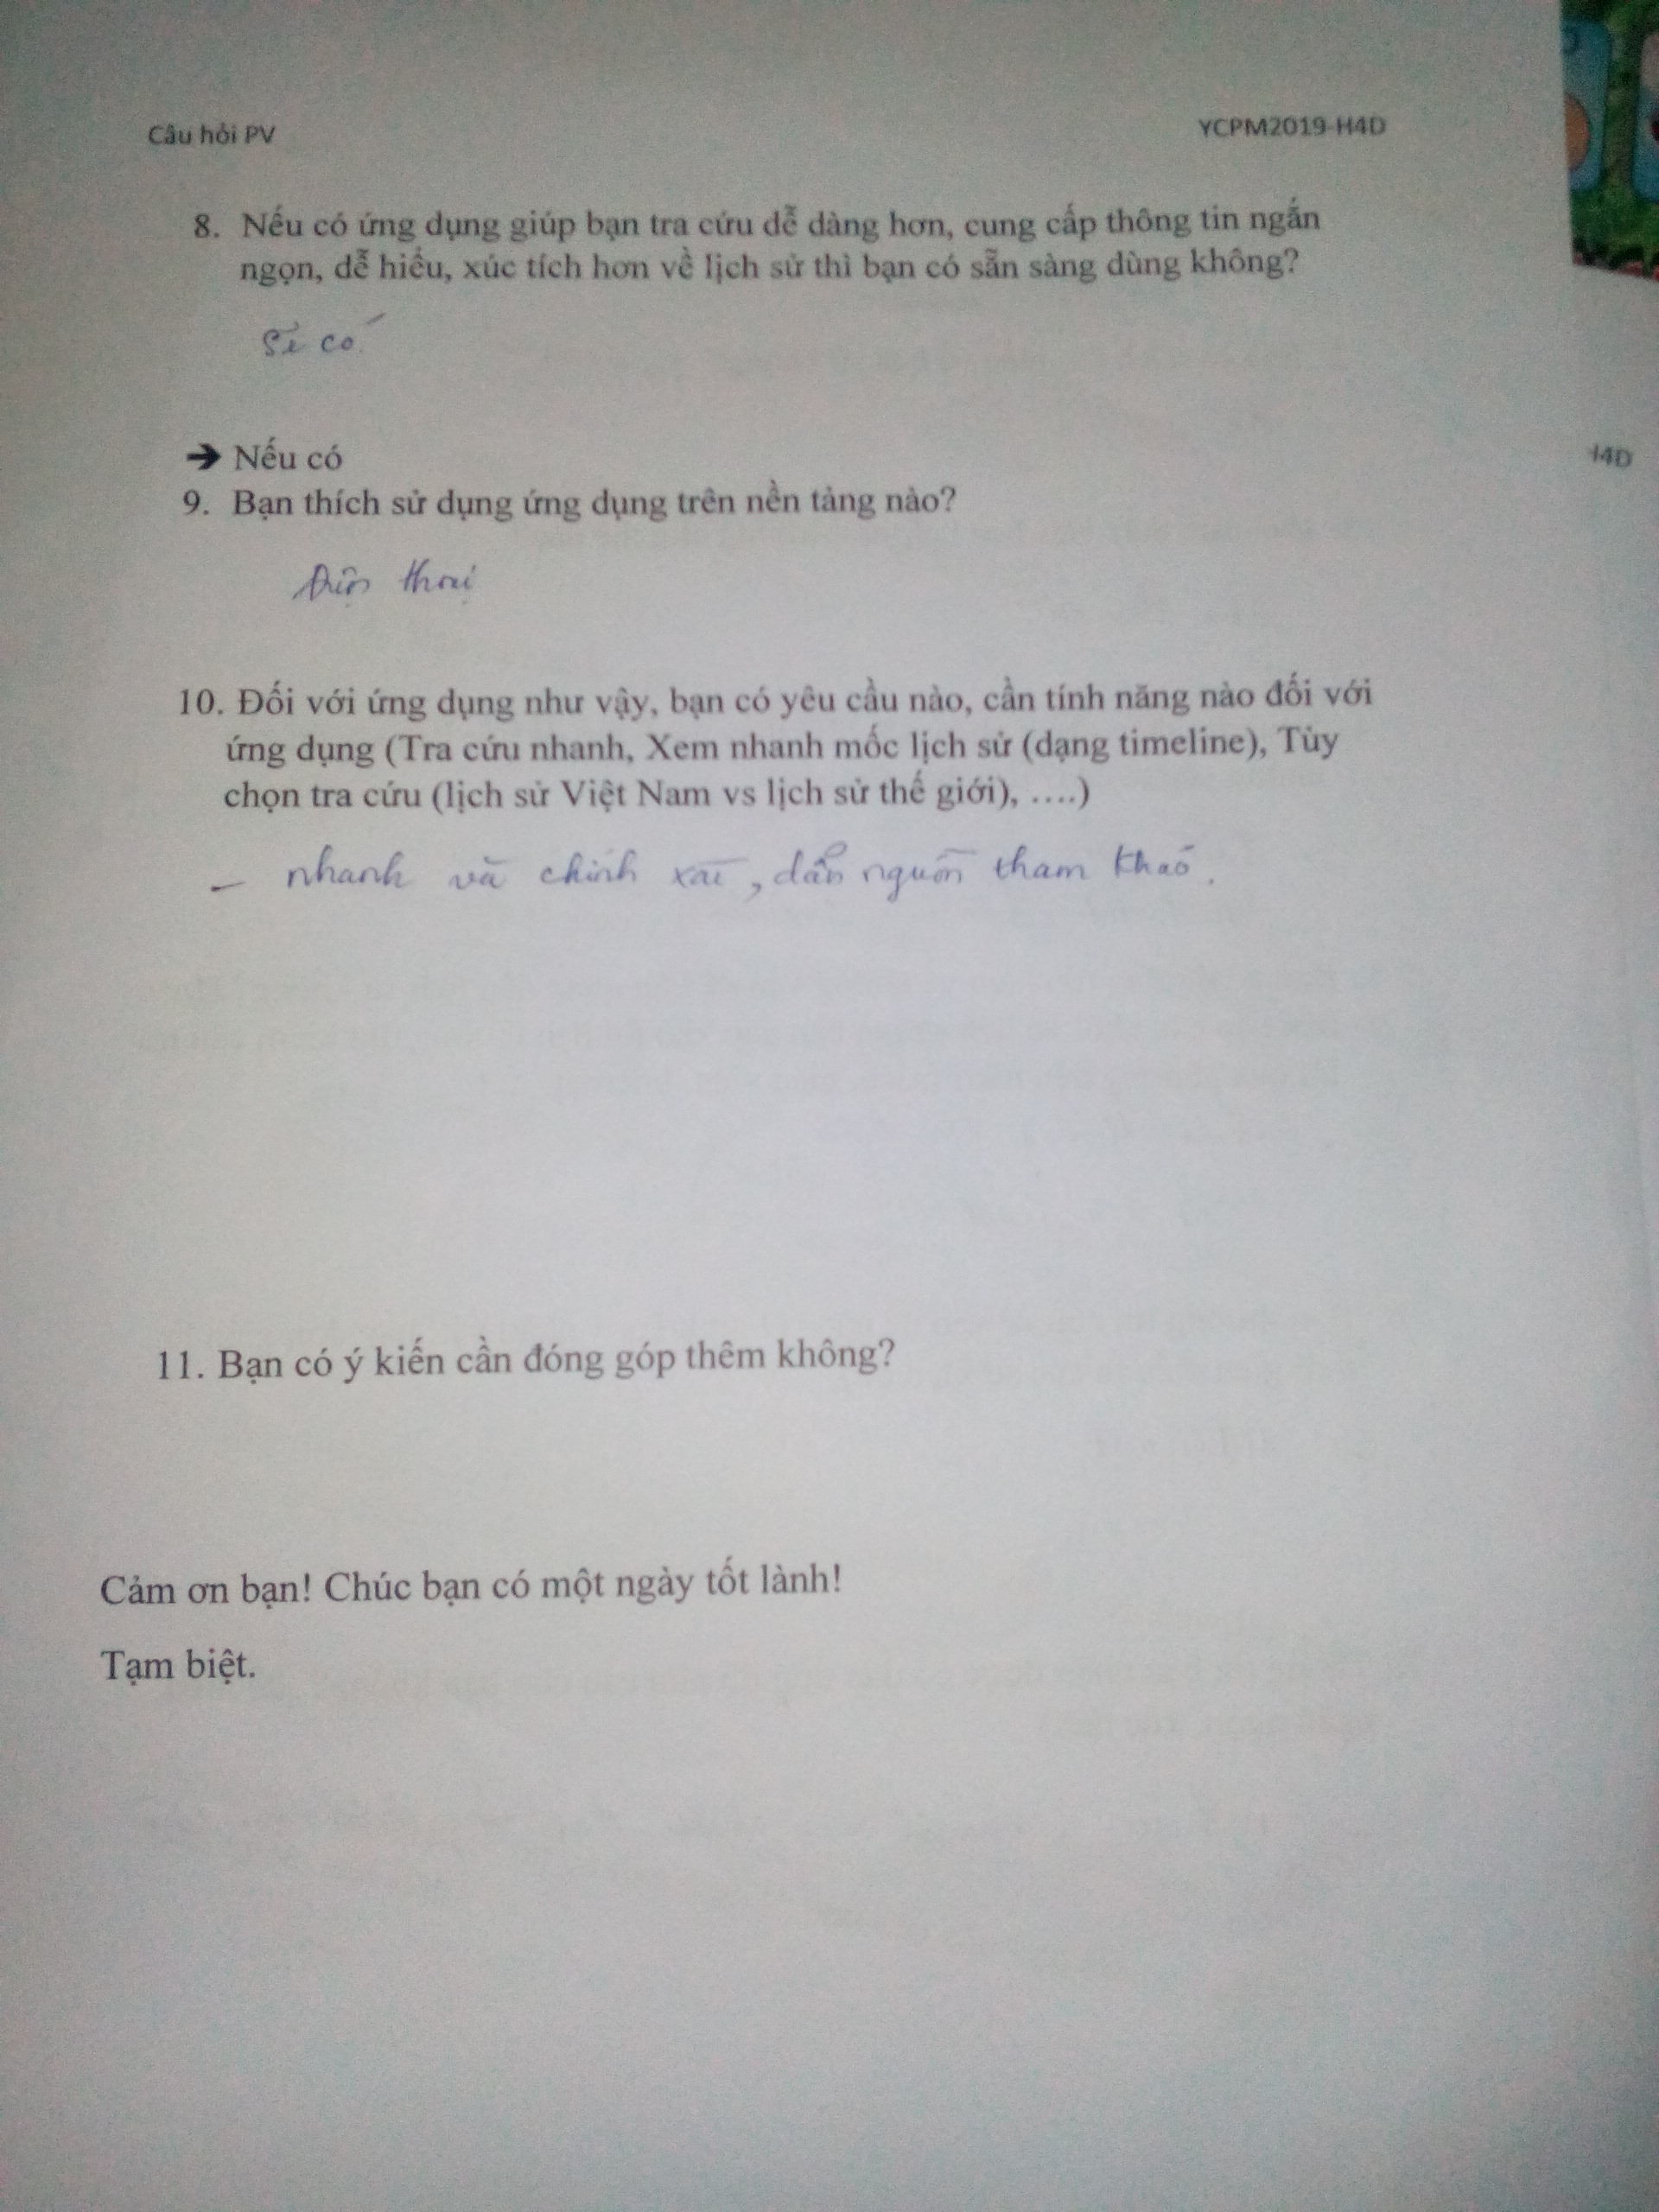 Câu hỏi PV
YCPM2019-H4D
8. Nếu có ứng dụng giúp bạn tra cứu dễ dàng hơn, cung cấp thông tin ngắn
ngọn, dễ hiểu, xúc tích hơn về lịch sử thì bạn có sẵn sàng dùng không?
Sẽ có
➔ Nếu có
H4D
9. Bạn thích sử dụng ứng dụng trên nền tảng nào?
Điện thoại
10. Đối với ứng dụng như vậy, bạn có yêu cầu nào, cần tính năng nào đối với
ứng dụng (Tra cứu nhanh, Xem nhanh mốc lịch sử (dạng timeline), Tùy
chọn tra cứu (lịch sử Việt Nam vs lịch sử thế giới), ....)
- nhanh và chính xác, dẫn nguồn tham khảo.
11. Bạn có ý kiến cần đóng góp thêm không?
Cảm ơn bạn! Chúc bạn có một ngày tốt lành!
Tạm biệt.